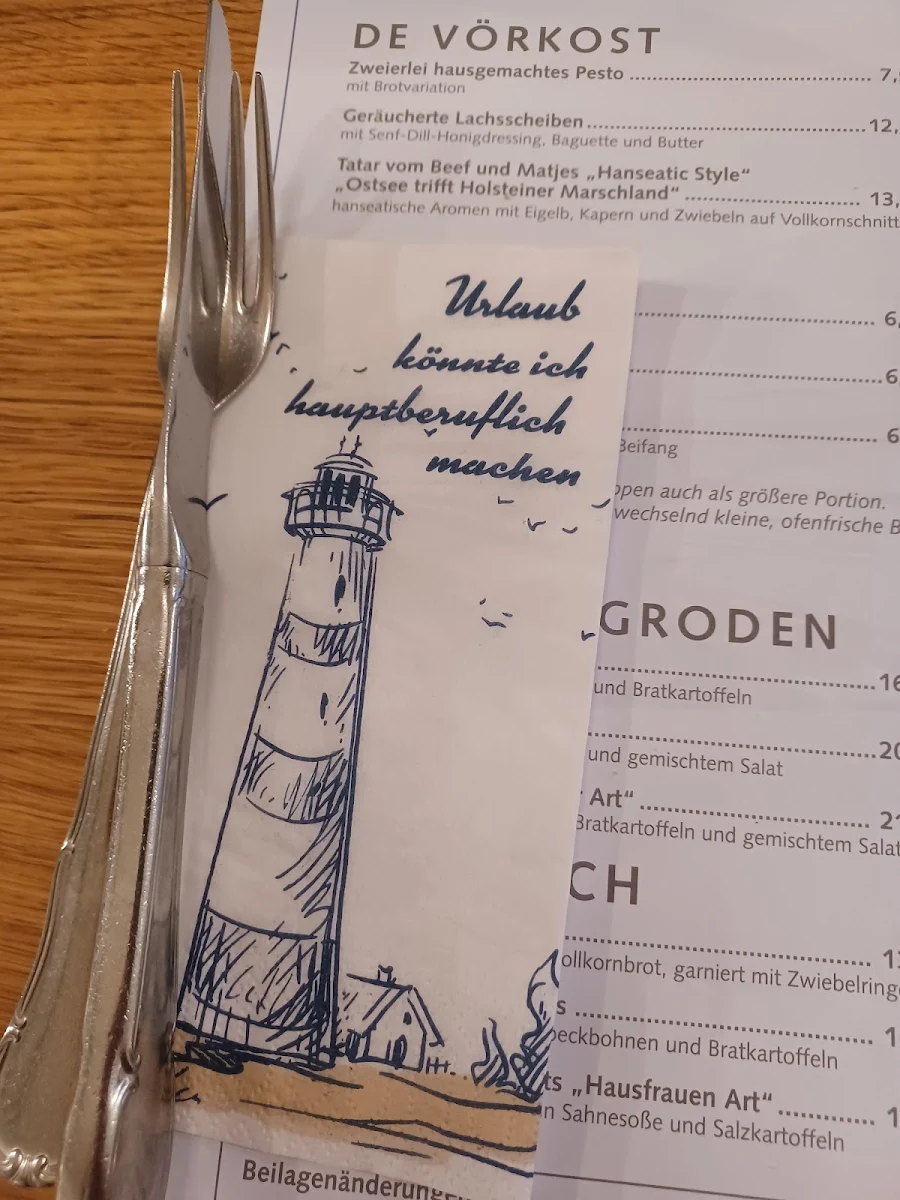 DE VÖRKOST
Zweierlei hausgemachtes Pesto ........ 7,
mit Brotvariation
Geräucherte Lachsscheiben ........ 12,
mit Senf-Dill-Honigdressing, Baguette und Butter
Tatar vom Beef und Matjes „Hanseatic Style“
„Ostsee trifft Holsteiner Marschland“ ........ 13,
hanseatische Aromen mit Eigelb, Kapern und Zwiebeln auf Vollkornschnitt
Urlaub
könnte ich
hauptberuflich
machen
6,
6,
6
Beifang
ppen auch als größere Portion.
wechselnd kleine, ofenfrische B
GRODEN
16
und Bratkartoffeln
20
und gemischtem Salat
Art“ ........ 21
Bratkartoffeln und gemischtem Salat
CH
1
ollkornbrot, garniert mit Zwiebelringe
s ........ 1
peckbohnen und Bratkartoffeln
ts „Hausfrauen Art“ ........ 1
n Sahnesoße und Salzkartoffeln
Beilagenänderungen